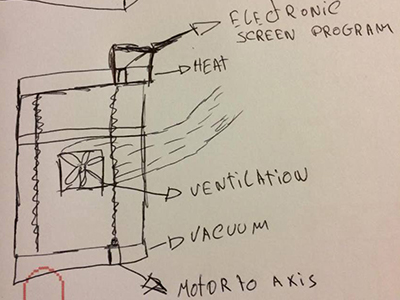 ELECTRONIC
SCREEN PROGRAM
HEAT
VENTILATION
VACUUM
MOTOR TO AXIS